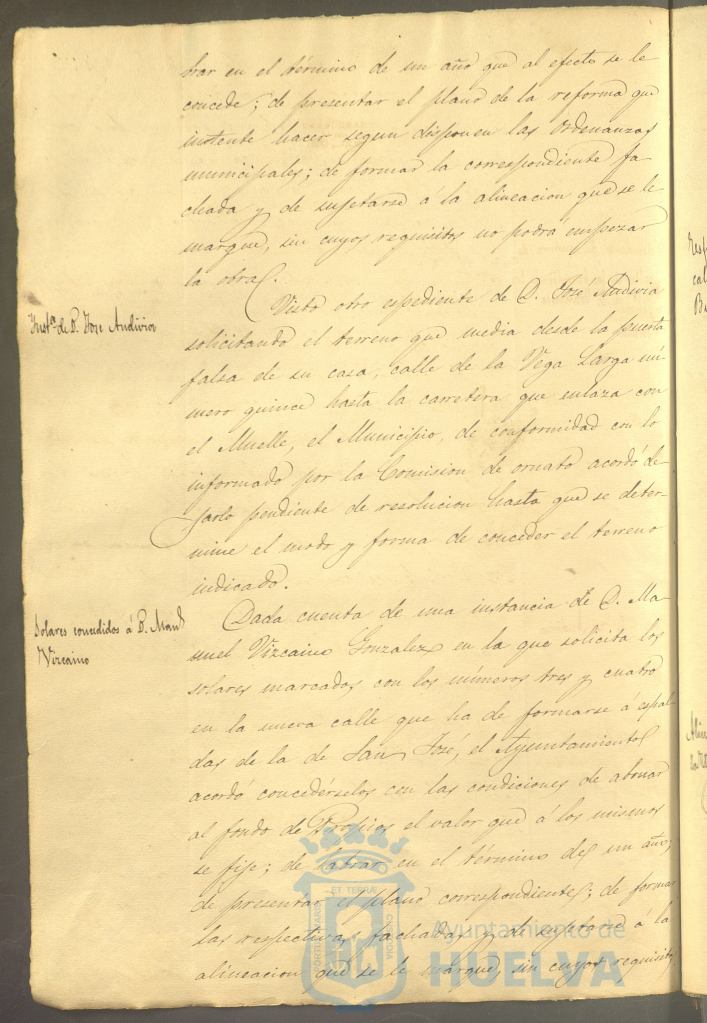 brar en el término de un año que al efecto se le
concede; de presentar el plano de la reforma que
intente hacer segun disponen las Ordenanzas
municipales; de formar la correspondiente fa-
chada y de sujetarse á la alineacion que se le
marque, sin cuyos requisitos no podrá empezar
la obra.
Inst.ª de D. Jose Andivia
Visto otro espediente de D. José Andivia
solicitando el terreno que media desde la puerta
falsa de su casa, calle de la Vega Larga nú-
mero quince hasta la carretera que enlaza con
el Muelle, el Municipio, de conformidad con lo
informado por la Comision de ornato acordó de-
jarlo pendiente de resolucion hasta que se deter-
mine el modo y forma de conceder el terreno
indicado.
Solares concedidos á D. Man.l
Vizcaino
Dada cuenta de una instancia de D. Ma-
nuel Vizcaino Gonzalez en la que solicita los
solares marcados con los números tres y cuatro
en la nueva calle que ha de formarse á espal-
das de la de San José, el Ayuntamiento
acordó concedérselos con las condiciones de abonar
al fondo de Propios el valor que á los mismos
se fije; de labrar en el término de un año;
de presentar el plano correspondiente; de formar
las respectivas fachadas y de sujetarse á la
alineacion que se le marque, sin cuyos requisitos
Ayuntamiento de
HUELVA